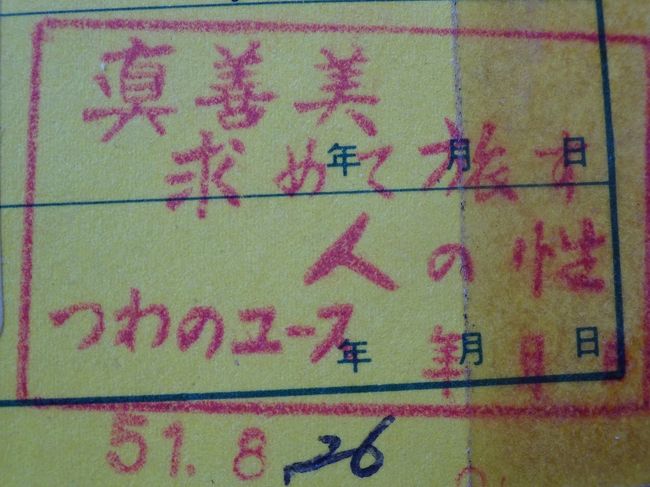 真善美
求めて旅す
年 月 日
人の性
つわのユース
年 月 日
年 月
51.8.26